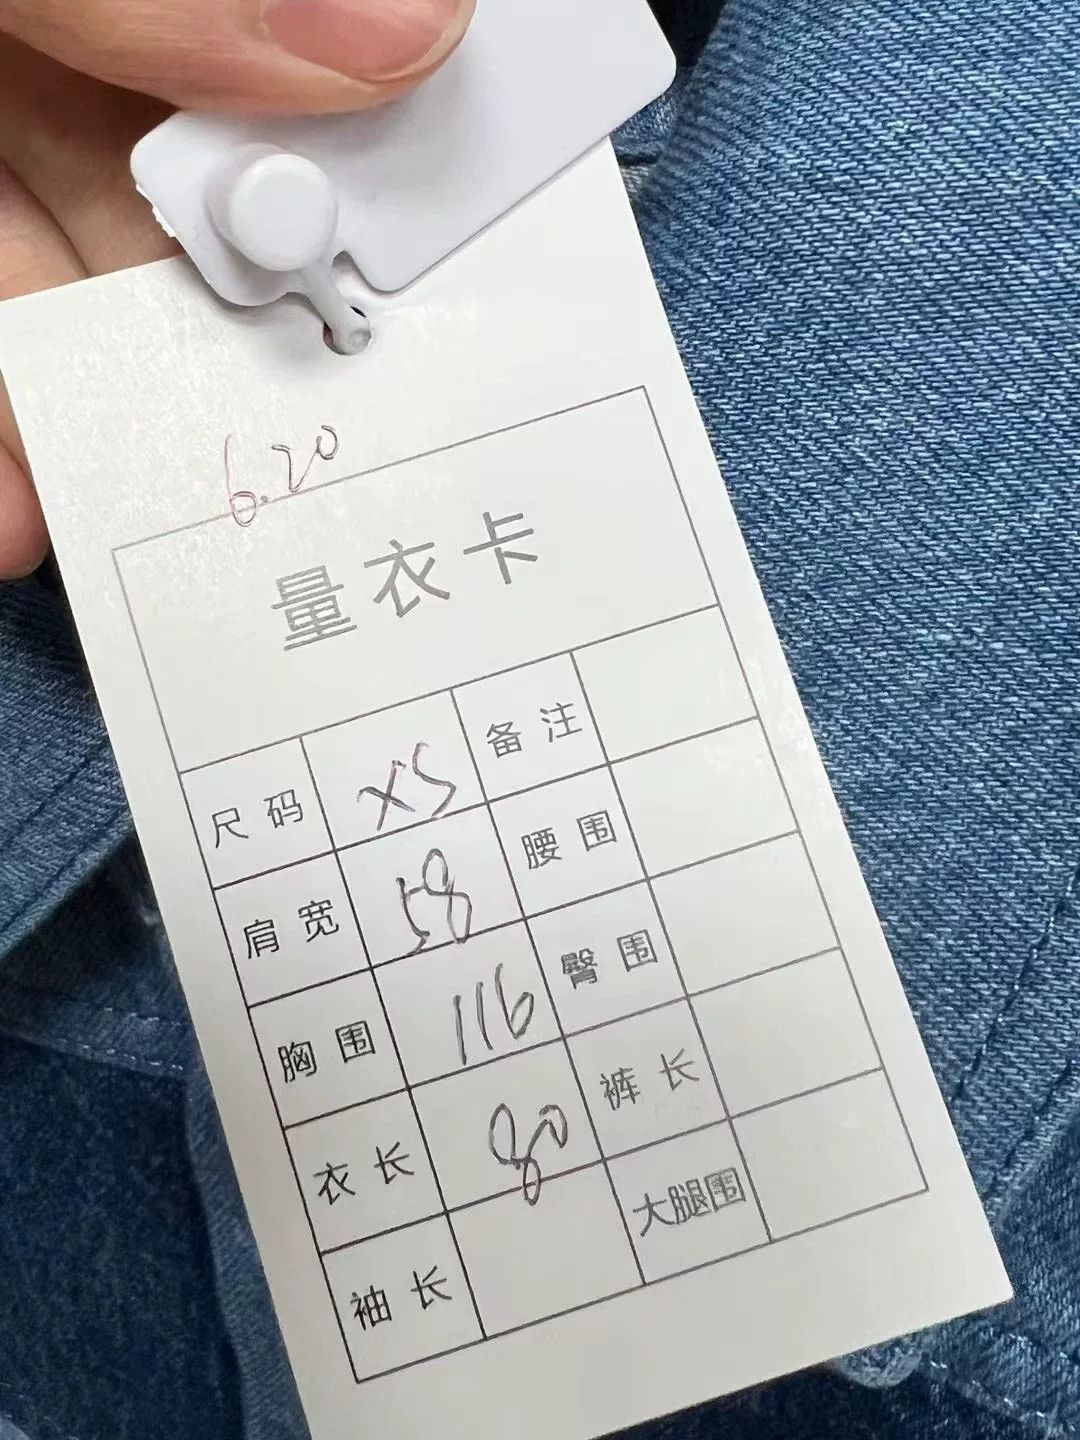 6.20
量衣卡
尺码 XS 备注
肩宽 58 腰围
胸围 116 臀围
衣长 80 裤长
袖长 大腿围